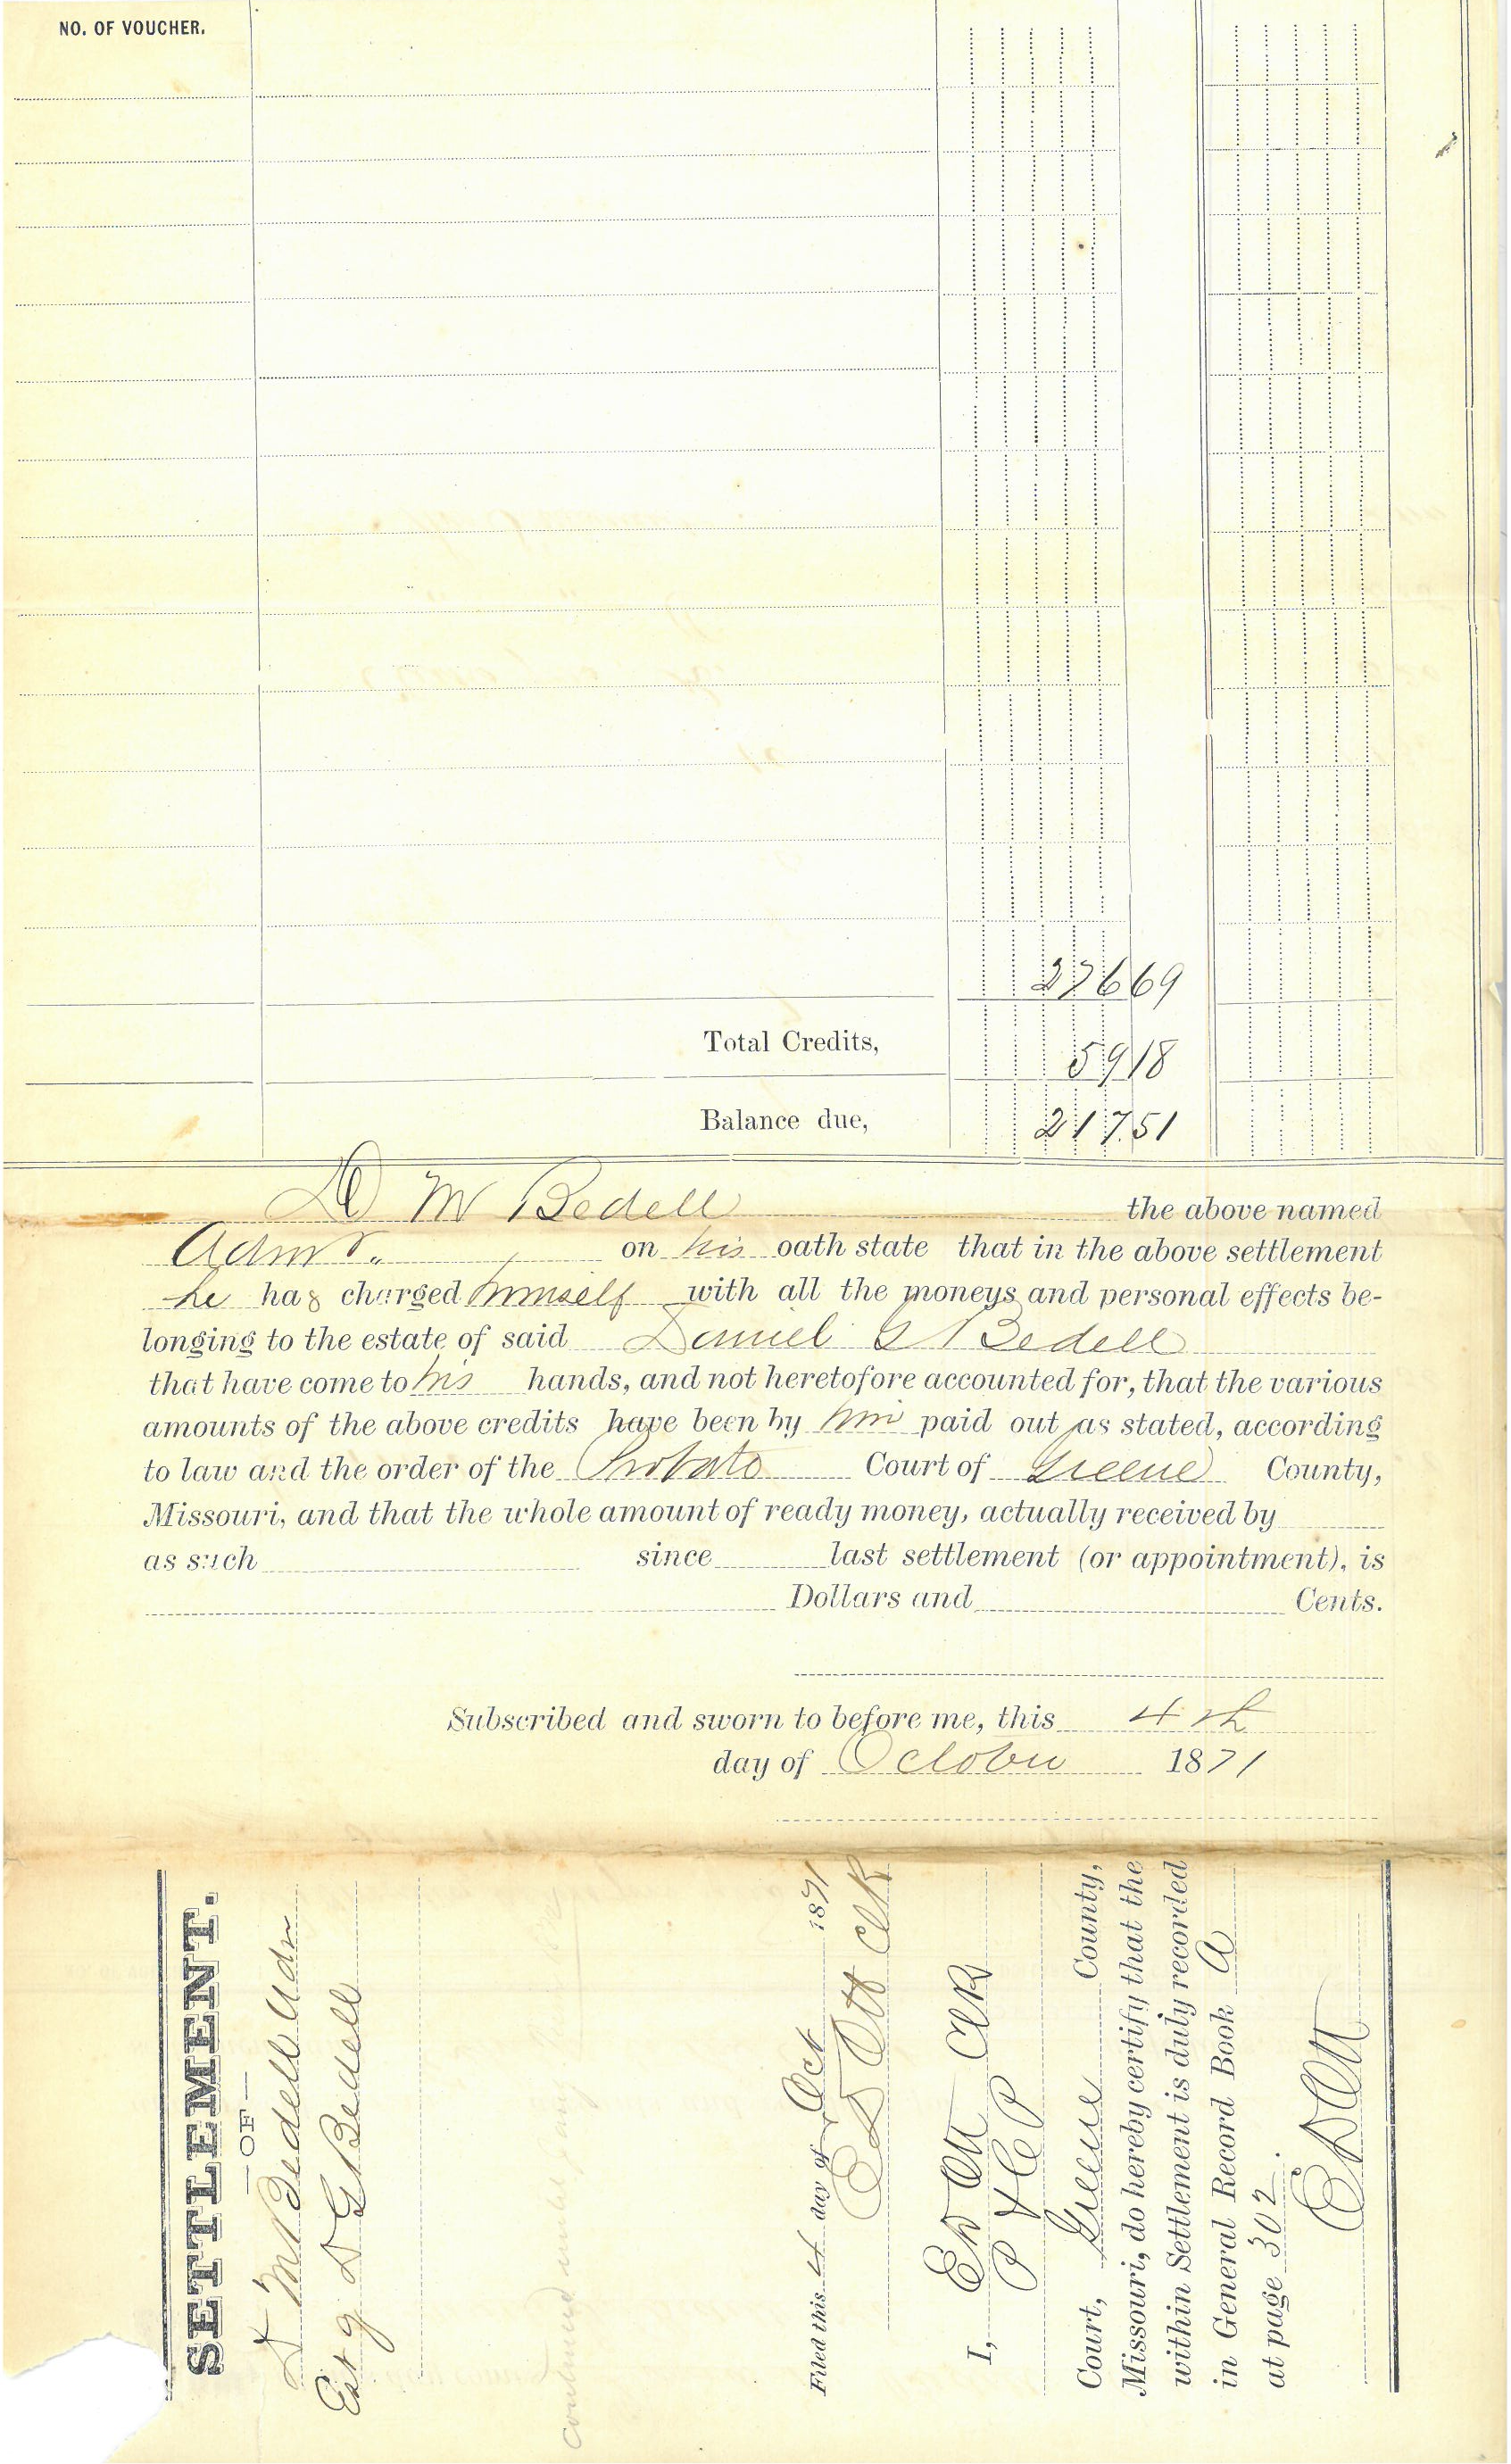 NO. OF VOUCHER.
276 69
Total Credits, 59 18
Balance due, 217.51
D M Bedell the above named
Admr. on his oath state that in the above settlement
he has charged himself with all the moneys and personal effects be-
longing to the estate of said Daniel G Bedell
that have come to his hands, and not heretofore accounted for, that the various
amounts of the above credits have been by him paid out as stated, according
to law and the order of the Probate Court of Greene County,
Missouri, and that the whole amount of ready money, actually received by
as such since last settlement (or appointment), is
Dollars and Cents.
Subscribed and sworn to before me, this 4th
day of October 1871
SETTLEMENT.
—OF—
D M Bedell Adm
Est of D G Bedell
continued
Filed this 4 day of Oct 1871
E D Ott Clk
I, E D Ott Clk
P & C P
Court, Greene County,
Missouri, do hereby certify that the
within Settlement is duly recorded
in General Record Book A
at page 302.
E D Ott